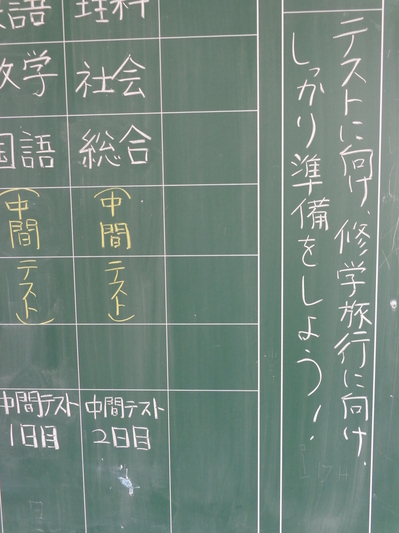 テストに向け、修学旅行に向け、
しっかり準備をしよう!
理科
社会
総合
(中間
テスト)
中間テスト
2日目
語
数学
国語
(中間
テスト)
中間テスト
1日目